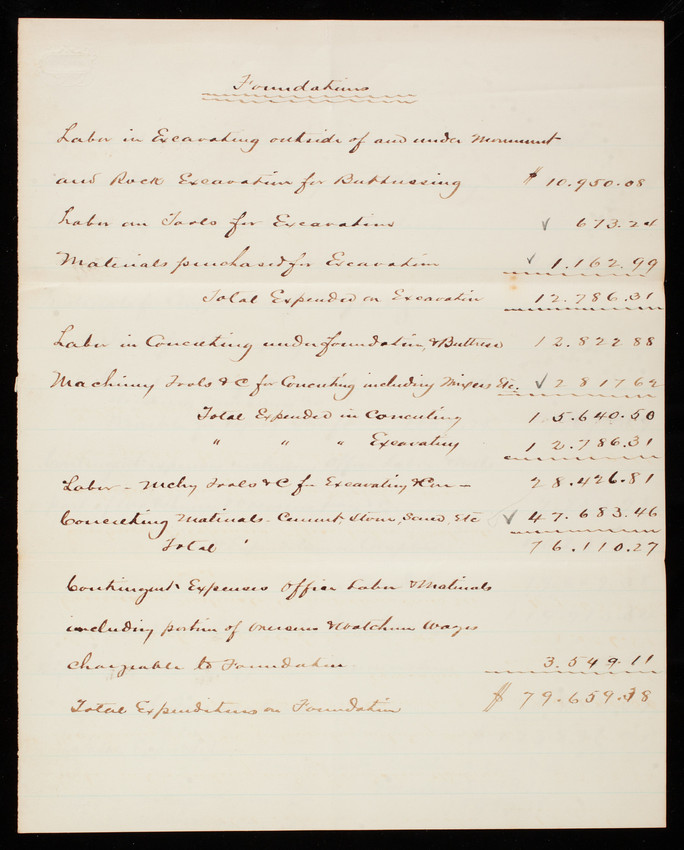 Foundations
Labor in Excavating outside of and under Monument
and Rock Excavation for Buttressing $ 10.950.08
Labor on Tools for Excavation √ 673.24
Materials purchased for Excavation √ 1.162.99
Total Expended on Excavation 12.786.31
Labor in Concreting under foundation, & Buttress 12.822 88
Machiny Tools & C for Concreting including Mixers Etc. √ 2 817 62
Total Expended in Concreting 15.640.50
" " " Excavating 12.786.31
Labor - Mchy Tools & C for Excavating & Con - 28.426.81
Concreting Materials - Cement, Stone, Sand, Etc √ 47.683.46
Total 76.110.27
Contingent Expenses Office Labor & Materials
including portion of Overseers & Watchmen Wages
chargeable to Foundation 3.549.11
Total Expenditures on Foundation $ 79.659.38